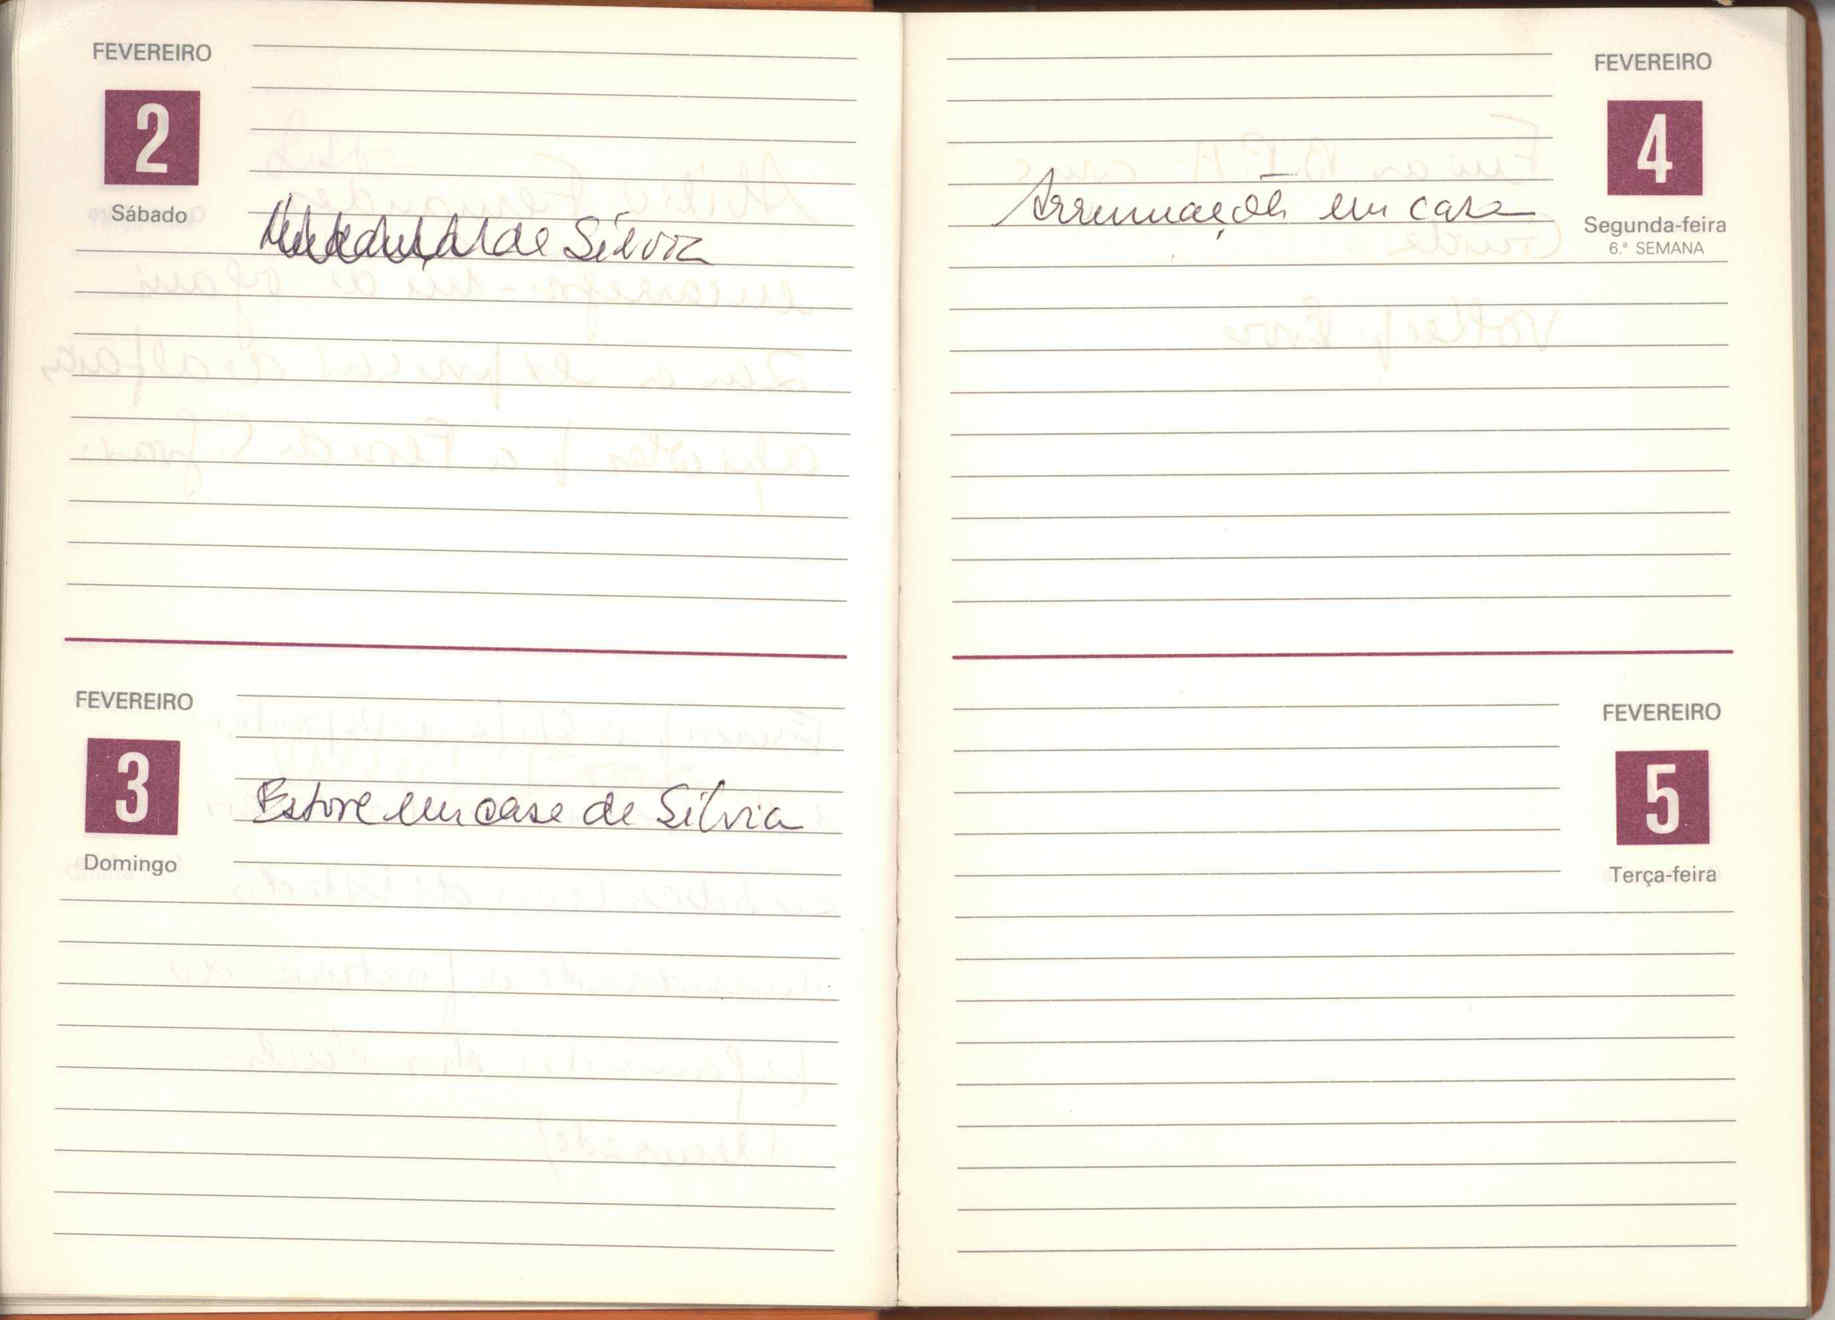 FEVEREIRO
2
Sábado
de Silvia
FEVEREIRO
3
Domingo
Estore em casa de Silvia
FEVEREIRO
4
Segunda-feira
6.ª SEMANA
Arrumações em casa
FEVEREIRO
5
Terça-feira